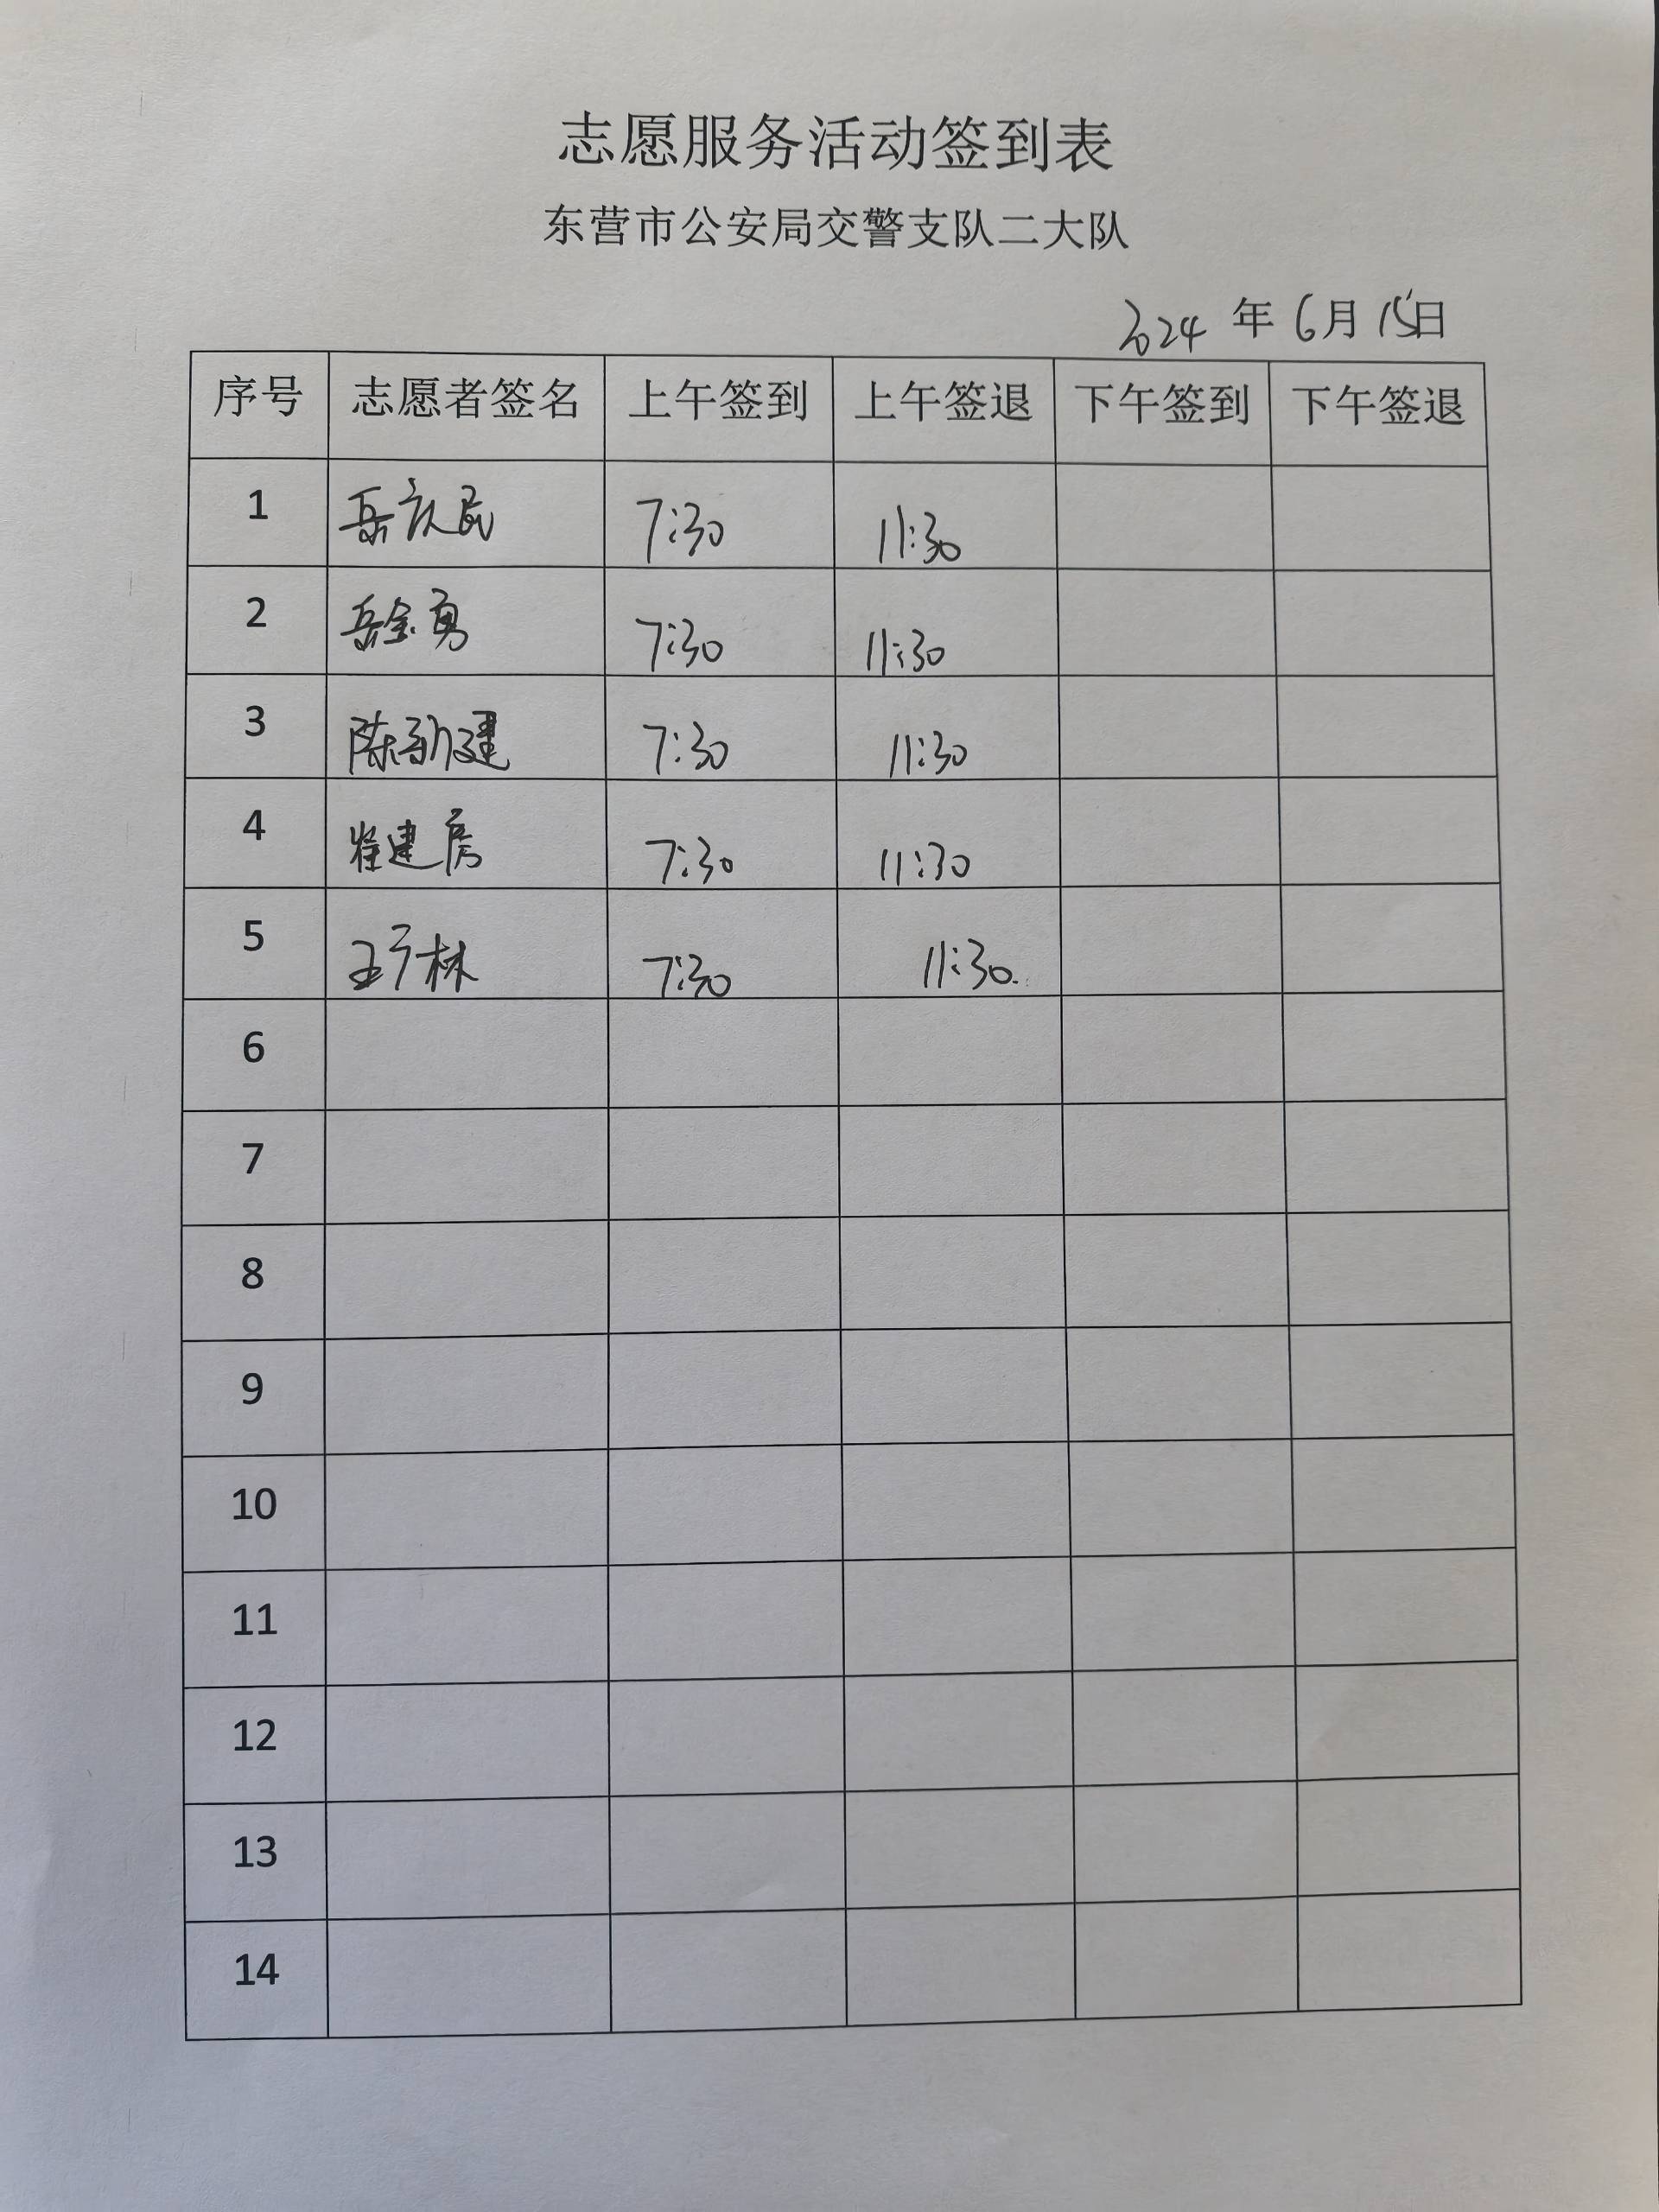 志愿服务活动签到表
东营市公安局交警支队二大队
2024 年 6月 15日
序号 志愿者签名 上午签到 上午签退 下午签到 下午签退
1 岳庆民 7:30 11:30
2 岳金勇 7:30 11:30
3 陈新建 7:30 11:30
4 崔建房 7:30 11:30
5 王广林 7:30 11:30
6
7
8
9
10
11
12
13
14